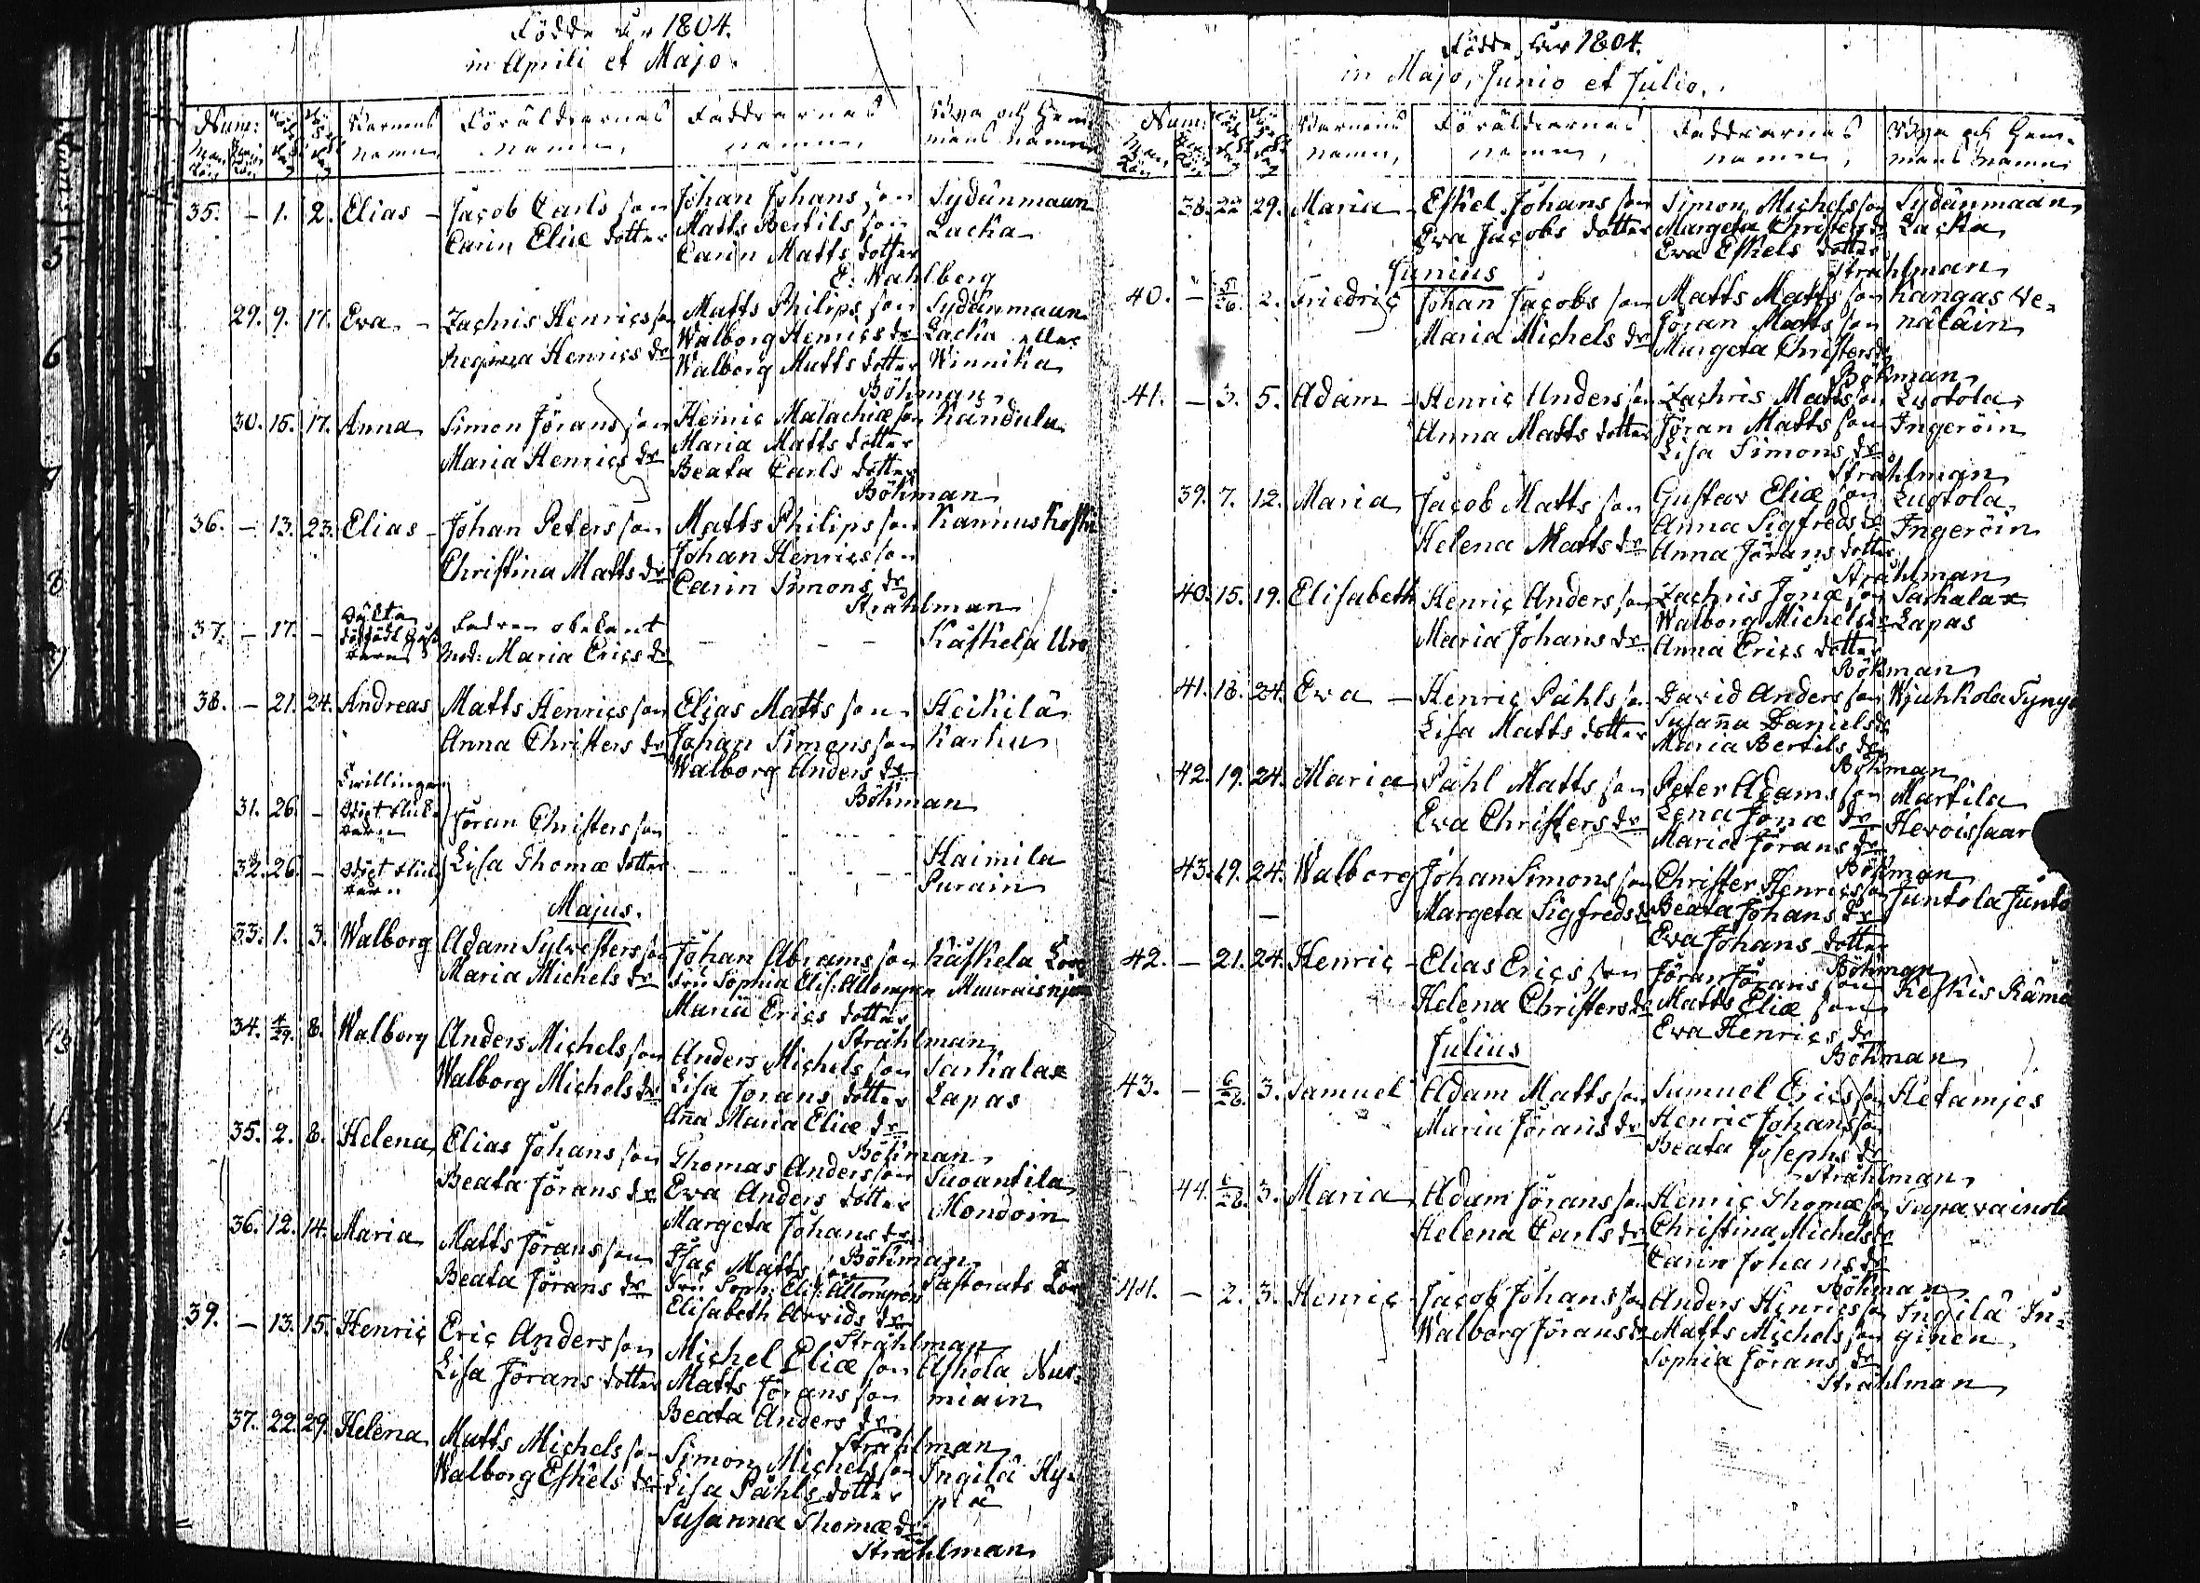 Födde År 1804.
in Aprili et Majo.
Num: Barnens Föräldrarnas Faddrarnas Bya och Hem-
namn, namn, namn, mans namn
35. – 1. 2. Elias – Jacob Carls son Johan Johans son Sydänmaan
Carin Eliæ dotter Matts Bertils son Lacka
Carin Matts dotter
E. Wahlberg
29. 9. 17. Eva – Zachris Henrics son Matts Philips son Sydänmaan
Regina Henrics dr Walborg Henrics dr Lacka eller
Walborg Matts dotter Winnika
Böhman
30. 15. 17. Anna Simon Jörans son Henric Malachiæ son Kandula
Maria Henrics dr Maria Matts dotter
Beata Carls dotter
Böhman
36. – 13. 23. Elias – Johan Peters son Matts Philips son Kannus
Christina Matts dr Johan Henrics son
Carin Simons dr
Strahlman
37. – 17. – Fadren obekant – – – Käskelä
Mod: Maria Erics dr
38. – 21. 24. Andreas Matts Henrics son Elias Matts son Heikilä
Anna Christers dr Johan Simons son Karhu
Walborg Anders dr
Böhman
Twillingar
31. 26. – Jöran Christers son
32. 26. – Lisa Thomæ dotter Haimila
Purain
Majus.
33. 1. 3. Walborg Adam Sylvesters son Johan Abrams son Käskelä
Maria Michels dr Sophia Elis:
Maria Erics dotter
Strahlman
34. 4/29. 8. Walborg Anders Michels son Anders Michels son Sarkalax
Walborg Michels dr Lisa Jörans dotter Lapas
Aña Maria Eliæ dr
Böhman
35. 2. 8. Helena Elias Johans son Thomas Anders son Suoantila
Beata Jörans dr Eva Anders dotter Mondoin
Margeta Johans dr
Böhman
36. 12. 14. Maria Matts Jörans son Isac Matts son Pastorats
Beata Jörans dr Soph: Elis:
Elisabeth Arvids dr
Strahlman
39. – 13. 15. Henric Eric Anders son Michel Eliæ son Askola Nur-
Lisa Jörans dotter Matts Jörans son miain
Beata Anders dr
Strahlman
37. 22. 29. Helena Matts Michels son Simon Michels son Ingilä Hy-
Walborg Eskels dr Lisa Påhls dotter
Susanna Thomæ dr
Strahlman
Födde År 1804.
in Majo, Junio et Julio.
Num: Barnens Föräldrarnas Faddrarnas Byа och Hem-
namn, namn, namn, mans namn
38. 22 29. Maria Eskel Johans son Simon Michels son Sydänmaan
Eva Jacobs dotter Margeta Christers dr Lacka
Eva Eskels dotter
Strahlman
Junius
40. – 5/26. 2. Friedric Johan Jacobs son Matts Matts son Kangas We-
Maria Michels dr Jöran Matts son näläin
Margeta Christers dr
Böhman
41. – 3. 5. Adam – Henric Anders son Zachris Matts son Luotola
Anna Matts dotter Jöran Matts son Ingeröin
Lisa Simons dr
Strahlman
39. 7. 12. Maria Jacob Matts son Gustav Eliæ son Luotola
Helena Matts dr Anna Sigfreds dr Ingeröin
Anna Jörans dotter
Strahlman
40. 15. 19. Elisabeth Henric Anders son Zachris Jonæ son Sarkalax
Maria Johans dr Walborg Michels dr Lapas
Anna Erics dotter
Böhman
41. 18. 24. Eva – Henric Påhls son David Anders son
Lisa Matts dotter Susaña Daniels dr
Maria Bertils dr
Böhman
42. 19. 24. Maria Påhl Matts son Peter Adams son Martila
Eva Christers dr Lena Jonæ dr
Maria Jörans dr
Böhman
43. 19. 24. Walborg Johan Simons son Christer Henrics son Juntola
Margeta Sigfreds dr Beata Johans dr
Eva Johans dotter
Böhman
42. – 21. 24. Henric – Elias Erics son Jöran Jörans son
Helena Christers dr Matts Eliæ son
Eva Henrics dr
Böhman
Julius
43. – 6/28. 3. Samuel Adam Matts son Samuel Erics son Hetamies
Maria Jörans dr Henric Johans son
Beata Josephs dr
Strahlman
44. 6/28. 3. Maria Adam Jörans son Henric Thomæ son
Helena Carls dr Christina Michels dr
Carin Johans dr
Böhman
44. – 2. 3. Henric Jacob Johans son Anders Henrics son Ingilä In-
Walborg Jörans dr Matts Michels son ginen
Sophia Jörans dr
Strahlman